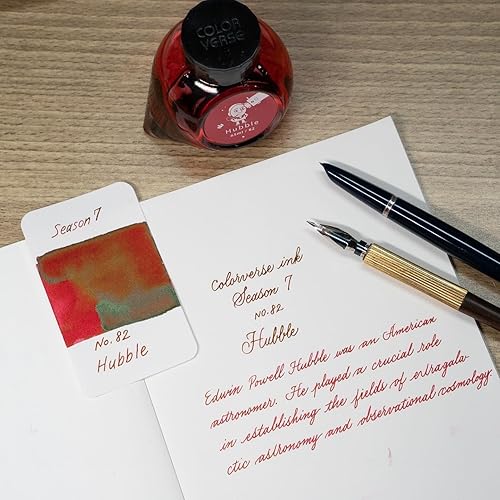 COLOR
VERSE
Hubble
65ml / 82
Season 7
No. 82
Hubble
Colorverse ink
Season 7
No. 82
Hubble
Edwin Powell Hubble was an American
astronomer. He played a crucial role
in establishing the fields of extragala-
ctic astronomy and observational cosmology